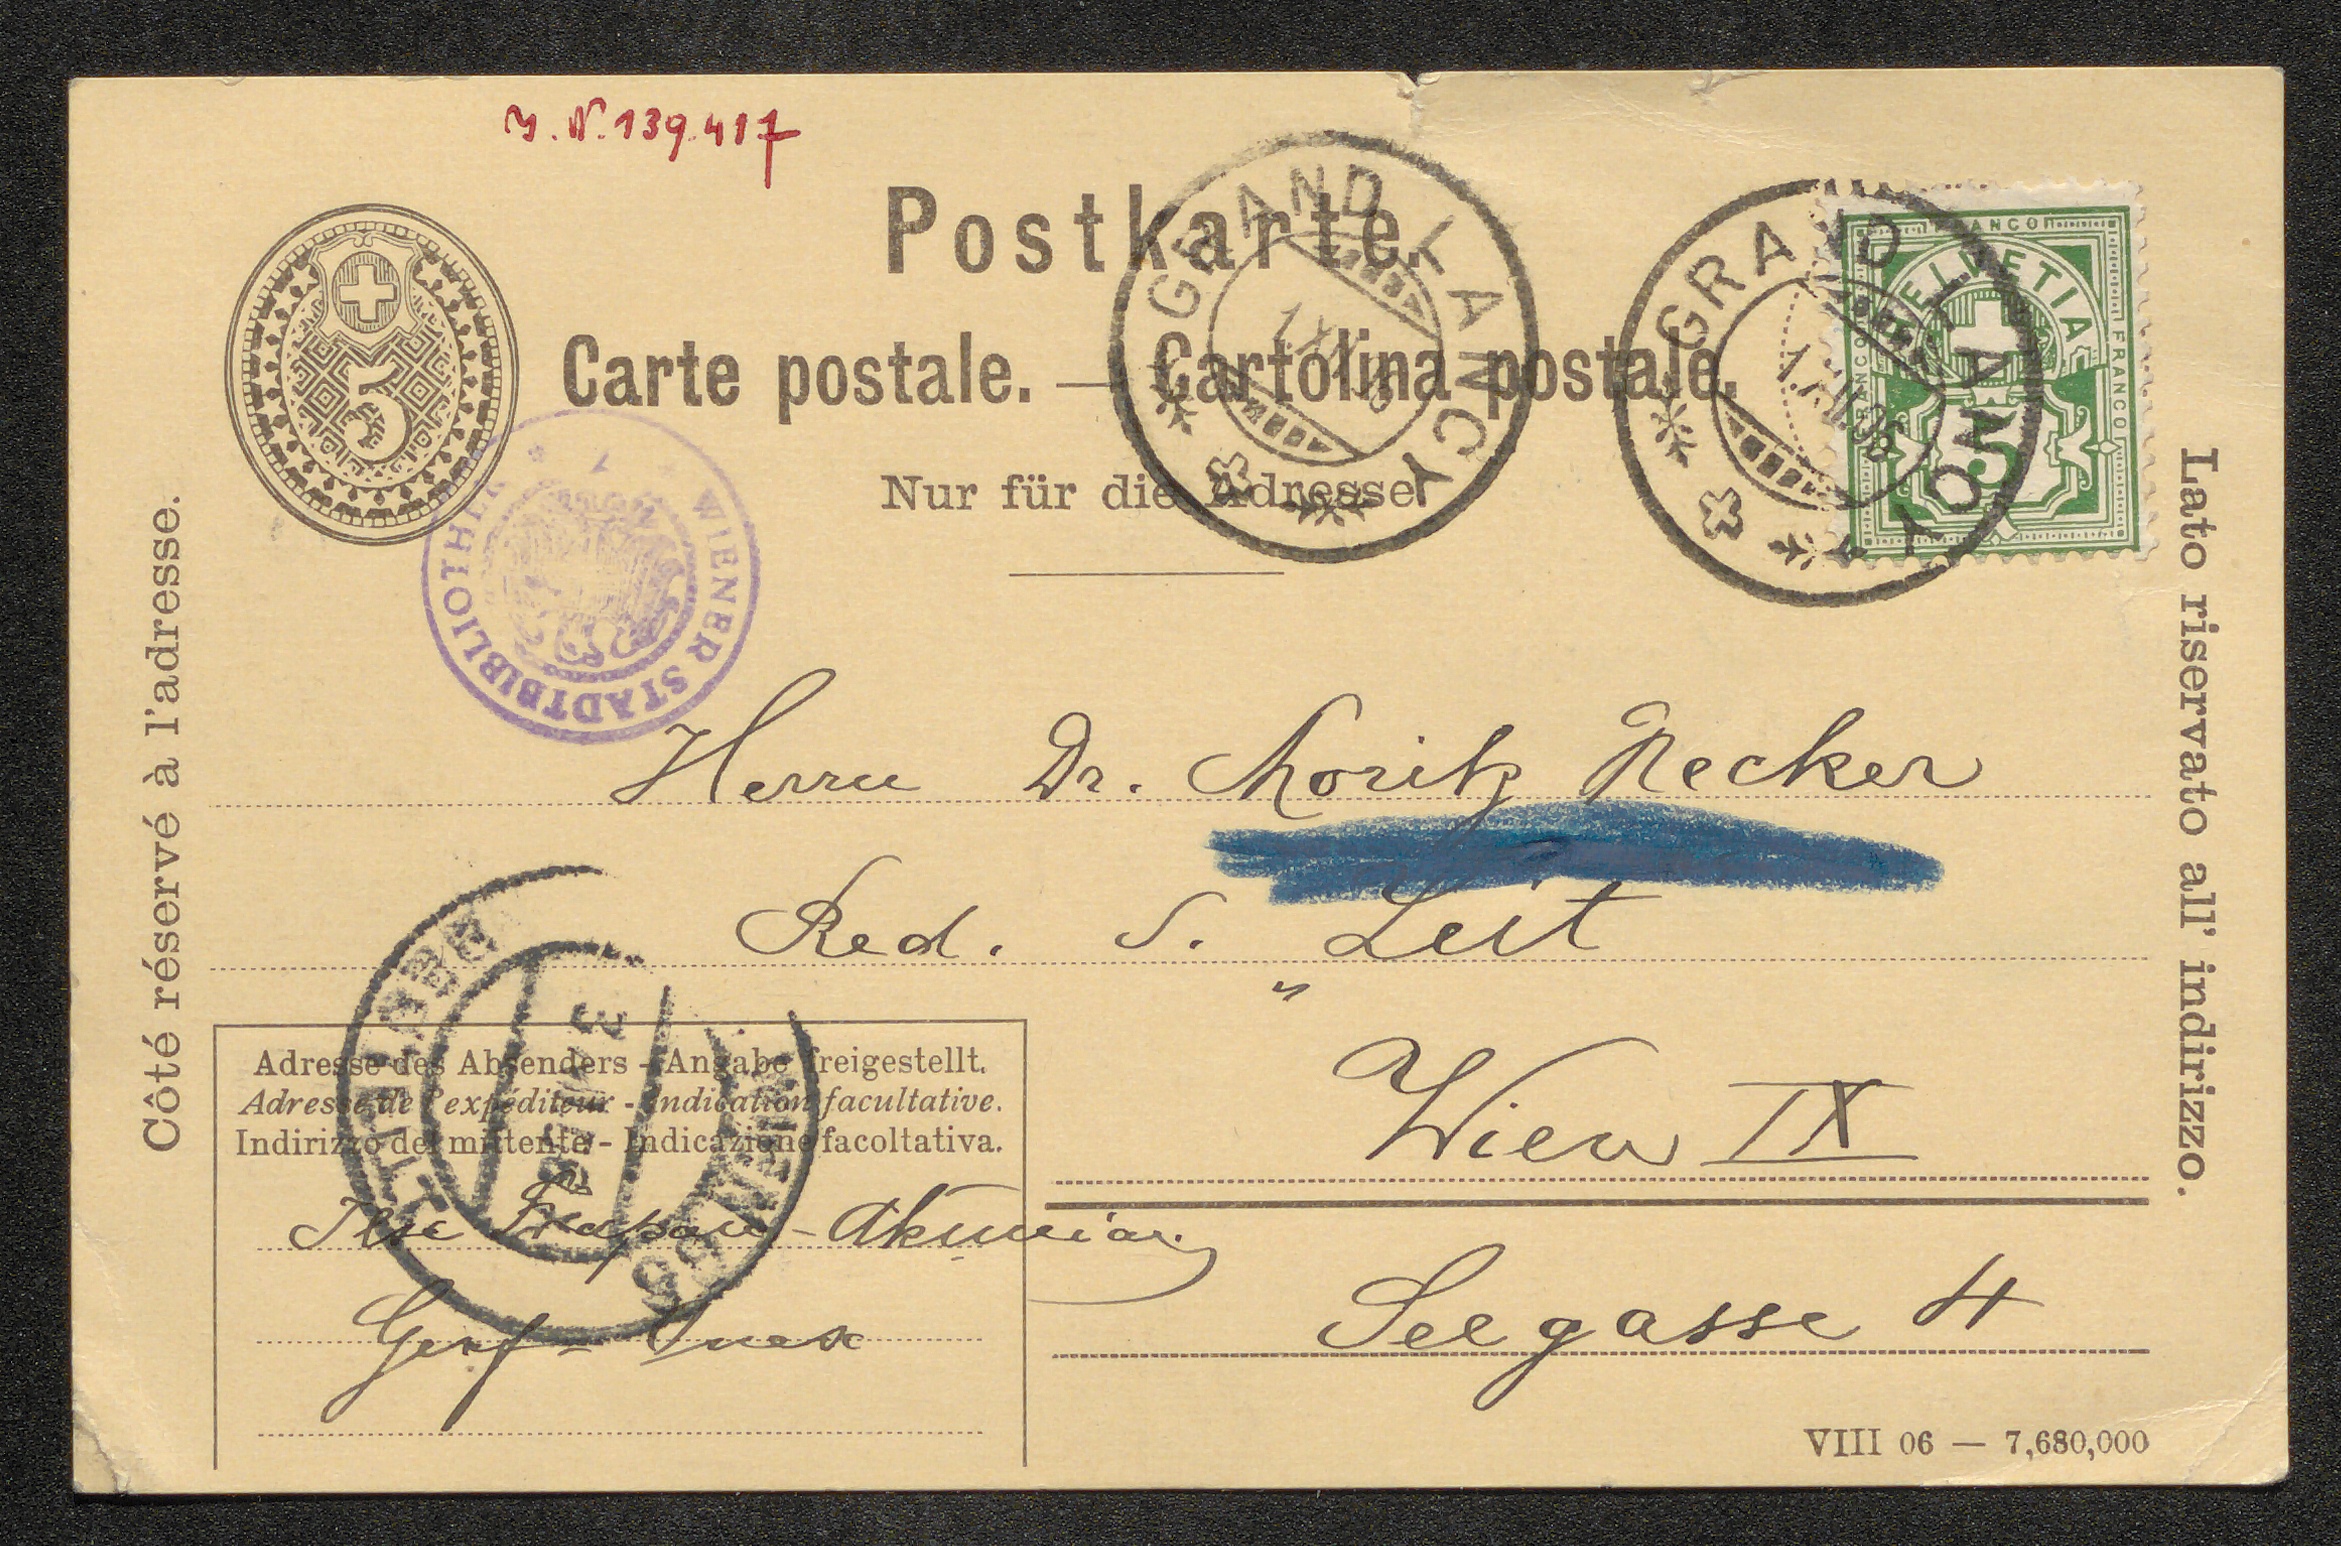 J. N. 139.417
Postkarte.
Carte postale. — Cartolina postale.
Nur für die Adresse.
Côté réservé à l'adresse.
Lato riservato all' indirizzo.
5
GRAND LANCY
1.XII.06
GRAND LANCY
1.XII.06
FRANCO
HELVETIA
FRANCO
FRANCO
5
WIENER STADTBIBLIOTHEK
Herrn Dr. Moritz Necker
Red. d. „Zeit"
Wien IX
Seegasse 4
Adresse des Absenders - Angabe freigestellt.
Adresse de l'expéditeur - Indication facultative.
Indirizzo del mittente - Indicazione facoltativa.
Ilse Frapan-Akunian
Genf-Onex
WIEN
VIII 06 — 7,680,000